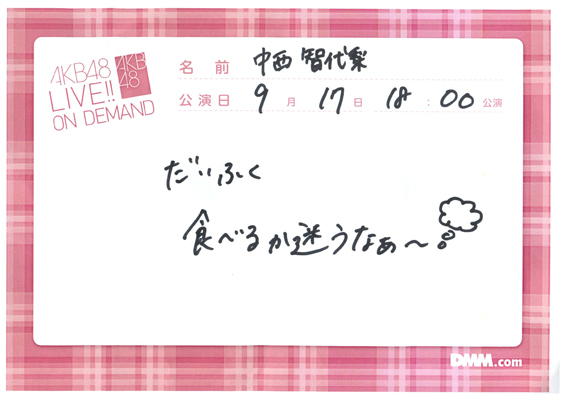 AKB48
LIVE!!
ON DEMAND
AKB
48
名前 中西智代梨
公演日 9月17日 18:00公演
だいふく
食べるか迷うなぁ〜
DMM.com